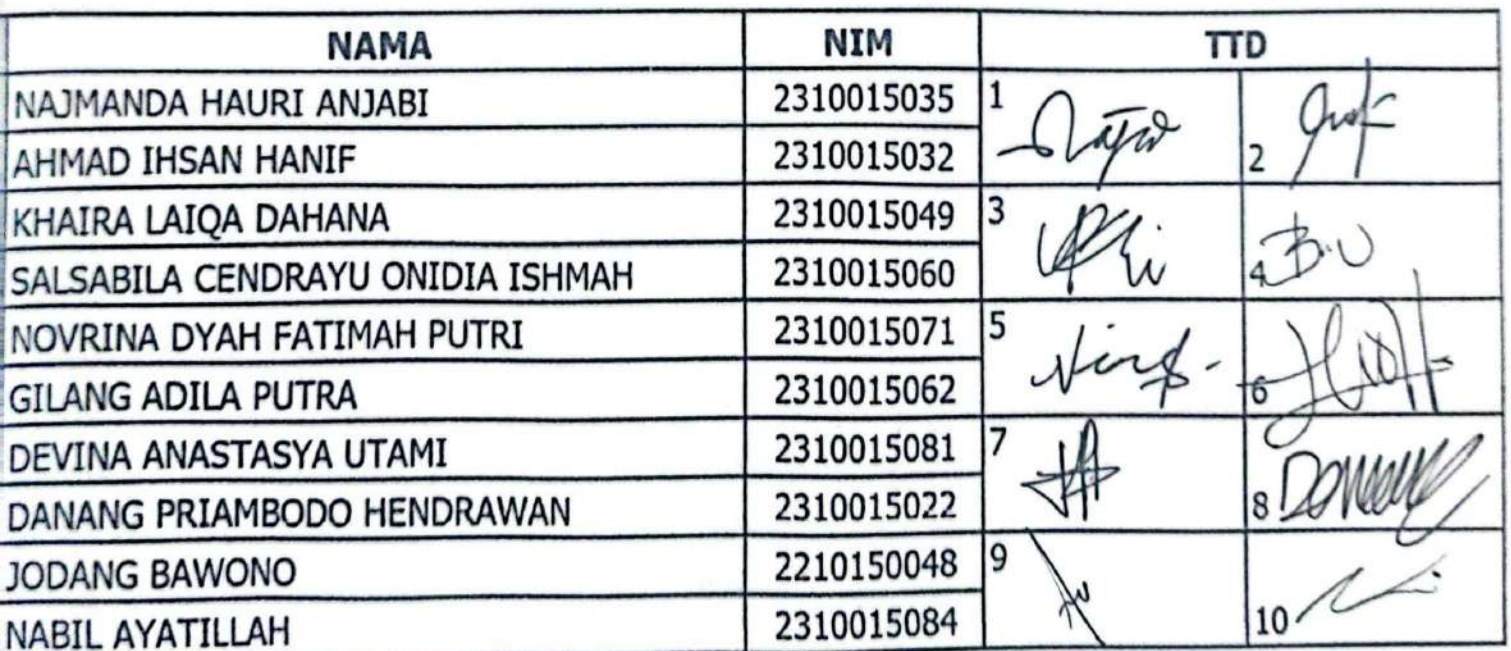 NAMA NIM TTD
NAJMANDA HAURI ANJABI 2310015035 1
AHMAD IHSAN HANIF 2310015032 2
KHAIRA LAIQA DAHANA 2310015049 3
SALSABILA CENDRAYU ONIDIA ISHMAH 2310015060 4
NOVRINA DYAH FATIMAH PUTRI 2310015071 5
GILANG ADILA PUTRA 2310015062 6
DEVINA ANASTASYA UTAMI 2310015081 7
DANANG PRIAMBODO HENDRAWAN 2310015022 8
JODANG BAWONO 2210150048 9
NABIL AYATILLAH 2310015084 10